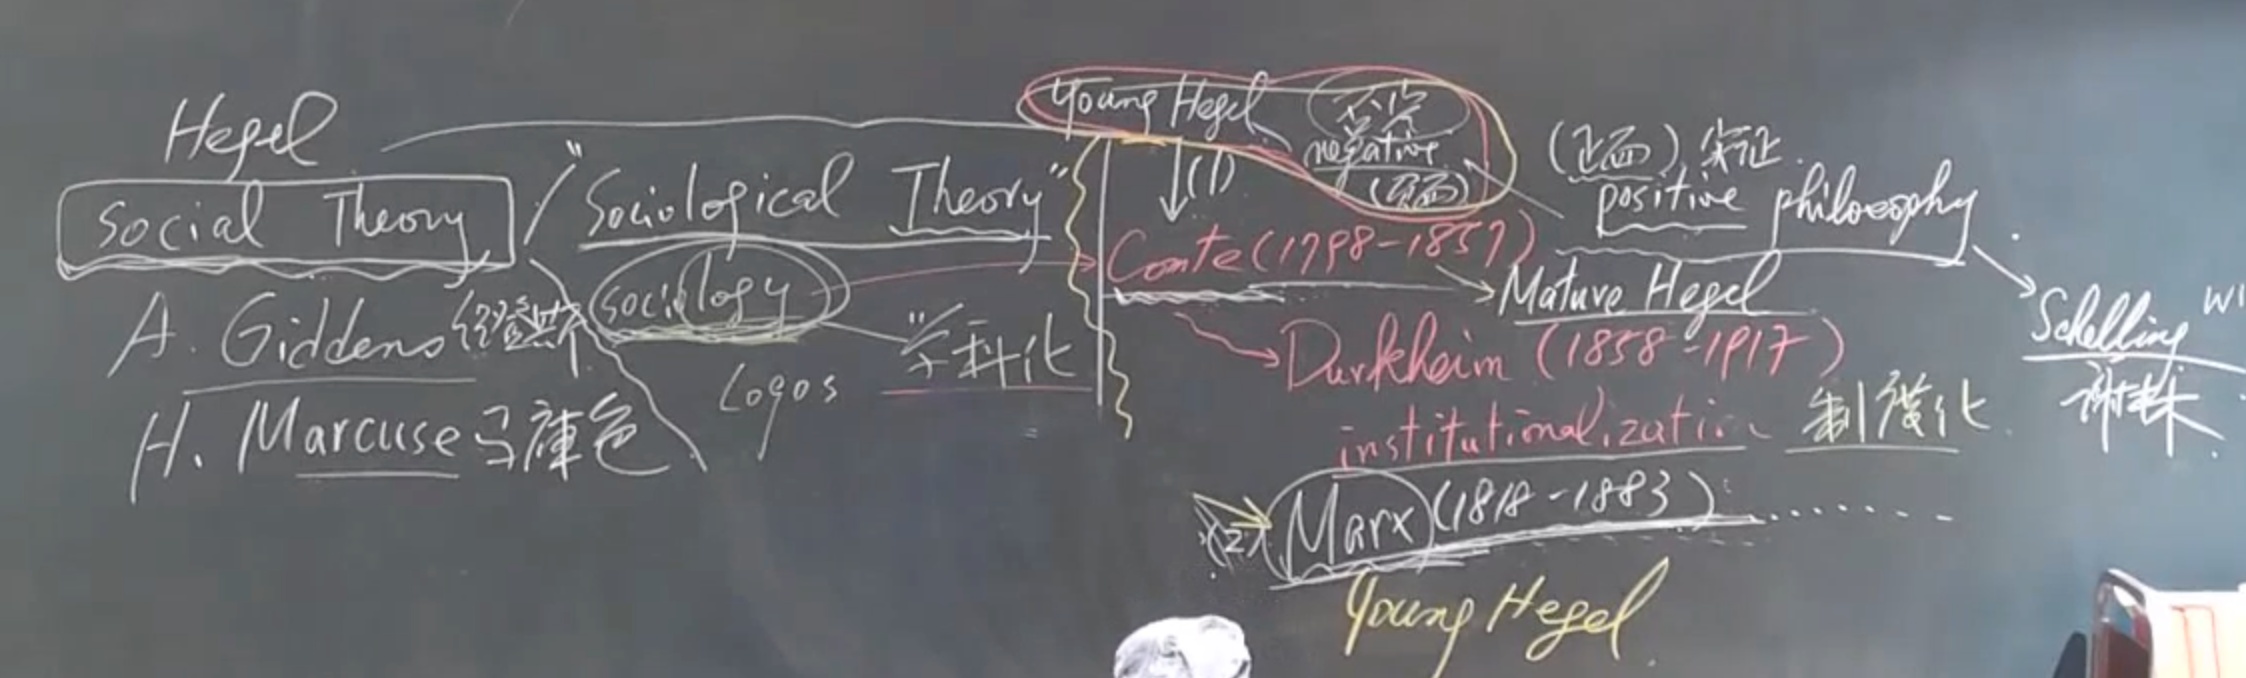 Hegel
Social Theory / "Sociological Theory"
A. Giddens
sociology
学科化
Logos
H. Marcuse 马庫色
Young Hegel
negative
(負面)
(1)
(正面) 実证
positive philosophy
Comte (1798-1857)
Mature Hegel
Schelling
谢林
Durkheim (1858-1917)
institutionalization 制度化
(2) Marx (1818-1883)
Young Hegel